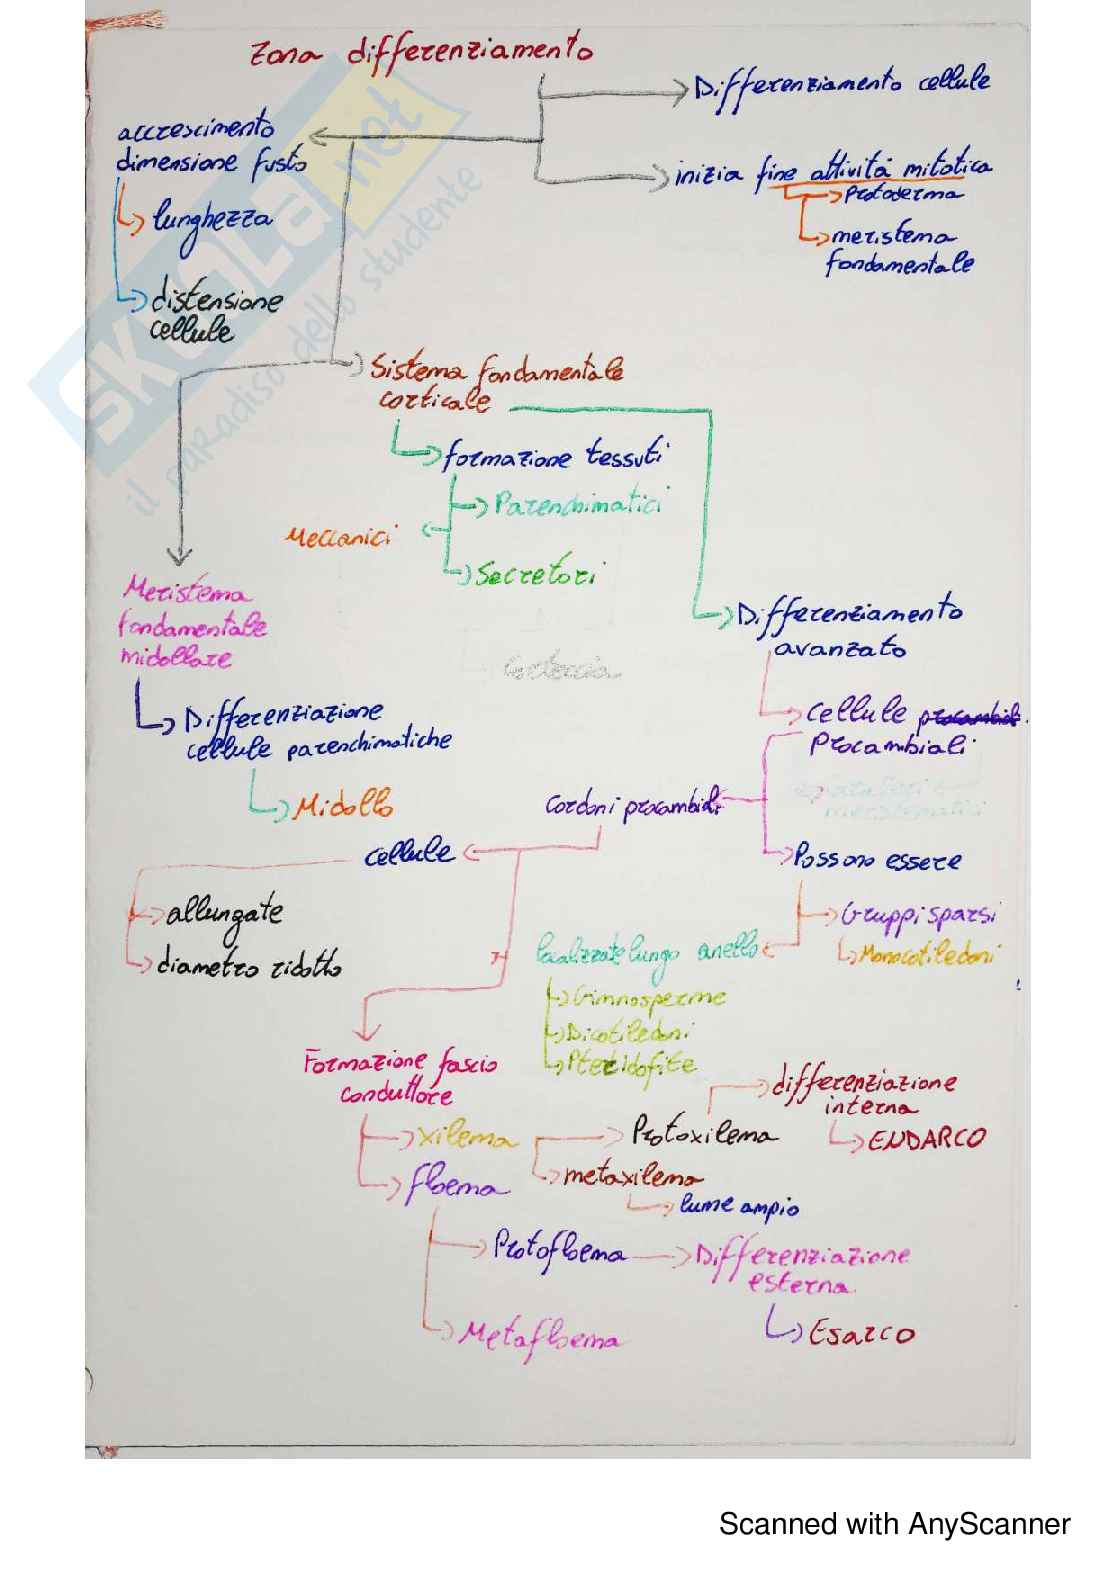 Zona differenziamento
Differenziamento cellule
accrescimento
dimensione fusto
inizia fine attività mitotica
Protoderma
lunghezza
meristema
fondamentale
distensione
cellule
Sistema fondamentale
corticale
formazione tessuti
Parenchimatici
Meccanici
Secretori
Meristema
fondamentale
midollare
Differenziamento
avanzato
Corteccia
Differenziazione
cellule parenchimatiche
Cellule
Procambiali
Midollo
Cordoni procambiali
cellule
Possono essere
allungate
Gruppi sparsi
diametro ridotto
localizzate lungo anello
Monocotiledoni
Gimnosperme
Dicotiledoni
Pteridofite
Formazione fascio
conduttore
differenziazione
interna
xilema
Protoxilema
ENDARCO
floema
metaxilema
lume ampio
Protofloema
Differenziazione
esterna
Metafloema
Esarco
SKUOLA.net
il paradiso dello studente
Scanned with AnyScanner